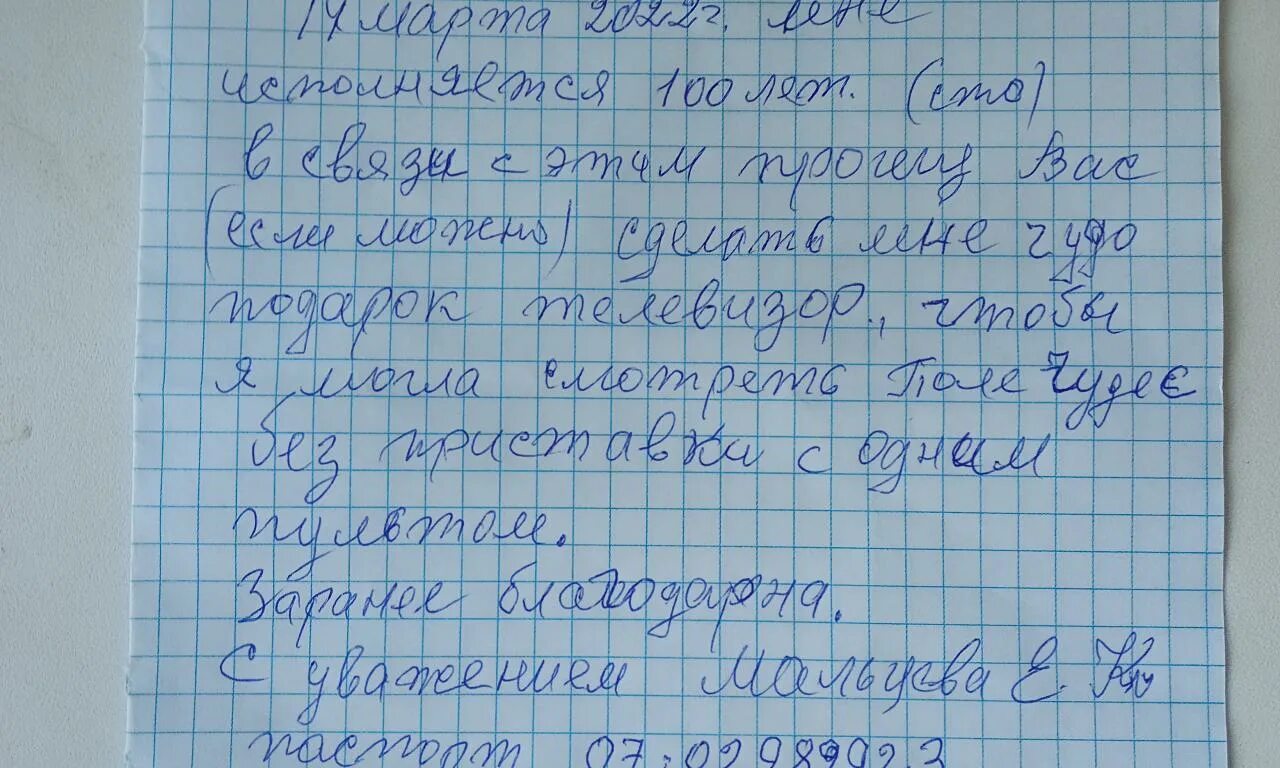 14 марта 2022 г. мне
исполняется 100 лет. (сто)
в связи с этим прошу Вас
(если можно) сделать мне чудо
подарок телевизор., чтобы
я могла смотреть Поле Чудес
без приставки с одним
пультом.
Заранее благодарна.
С уважением Мальцева Е.
паспорт